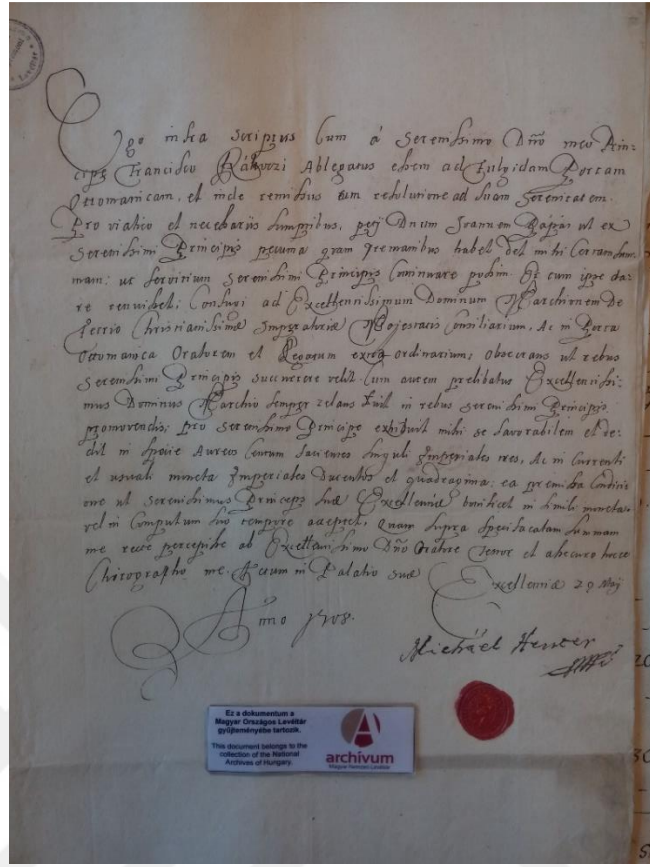 Ego infra scriptus Cum á Serenissimo Dño meo Prin-
cipe Francisco Rákoczi Ablegatus essem ad Fulgidam Portam
Ottomanicam, et inde remissus cum resolutione ad Suam Serenitatem.
Pro viatico et necessariis Sumptibus, petij Dnum Joannem Pápai ut ex
Serenissimi Principis pecunia quam prae manibus habet, det mihi Certam Sum-
mam; ut Servitium Serenissimi Principis Continuare possim. Et cum ipse da-
re renuisset; Confugi ad Excellentissimum Dominum Marchionem De
Ferrio Christianissimae Imperatoriae Majestatis Consiliarium, Ac in Porta
Ottomanica Oratorem et Legatum extra ordinarium; obsecrans ut rebus
Serenissimi Principis succurrere velit. Cum autem prelibatus Excellentissi-
mus Dominus Marchio Semper zelans fuit in rebus Serenissimi Principis
promovendis; pro Serenissimo Principe exhibuit mihi se favorabilem et de-
dit in specie Aureos Centum facientes singuli Imperiales tres, Ac in Currenti
et usuali moneta Imperiales Ducentos et quadraginta: ea praemissa Conditi-
one ut Serenissimus Princeps Suae Excellentiae bonificet in simili moneta
vel in Computum suo tempore acceptet. Quam Supra Specificatam Summam
me recte percepisse ab Excellentissimo Dño Oratore Testor et assecuro hocce
Chirographo meo. Actum in Palatio Suae Excellentiae 29 Maij
Anno 1708.
Michäel Henter
Ez a dokumentum a
Magyar Országos Levéltár
gyűjteményébe tartozik.
This document belongs to the
collection of the National
Archives of Hungary.
archívum
Magyar Nemzeti Levéltár